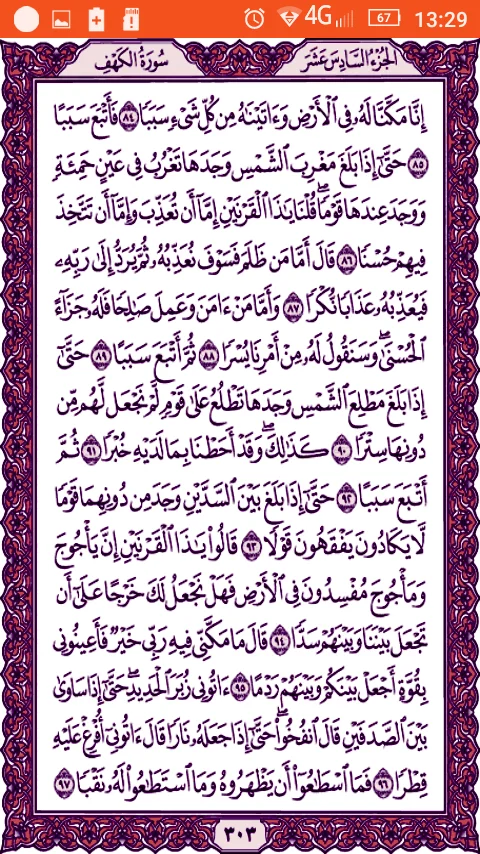 4G 67 13:29
الجزء السادس عشر سورة الكهف
إِنَّا مَكَّنَّا لَهُۥ فِى ٱلْأَرْضِ وَءَاتَيْنَٰهُ مِن كُلِّ شَىْءٍ سَبَبًا ٨٤ فَأَتْبَعَ سَبَبًا
٨٥ حَتَّىٰٓ إِذَا بَلَغَ مَغْرِبَ ٱلشَّمْسِ وَجَدَهَا تَغْرُبُ فِى عَيْنٍ حَمِئَةٍ
وَوَجَدَ عِندَهَا قَوْمًا ۗ قُلْنَا يَٰذَا ٱلْقَرْنَيْنِ إِمَّآ أَن تُعَذِّبَ وَإِمَّآ أَن تَتَّخِذَ
فِيهِمْ حُسْنًا ٨٦ قَالَ أَمَّا مَن ظَلَمَ فَسَوْفَ نُعَذِّبُهُۥ ثُمَّ يُرَدُّ إِلَىٰ رَبِّهِۦ
فَيُعَذِّبُهُۥ عَذَابًا نُّكْرًا ٨٧ وَأَمَّا مَنْ ءَامَنَ وَعَمِلَ صَٰلِحًا فَلَهُۥ جَزَآءً
ٱلْحُسْنَىٰ ۖ وَسَنَقُولُ لَهُۥ مِنْ أَمْرِنَا يُسْرًا ٨٨ ثُمَّ أَتْبَعَ سَبَبًا ٨٩ حَتَّىٰٓ
إِذَا بَلَغَ مَطْلِعَ ٱلشَّمْسِ وَجَدَهَا تَطْلُعُ عَلَىٰ قَوْمٍ لَّمْ نَجْعَل لَّهُم مِّن
دُونِهَا سِتْرًا ٩٠ كَذَٰلِكَ ۖ وَقَدْ أَحَطْنَا بِمَا لَدَيْهِ خُبْرًا ٩١ ثُمَّ
أَتْبَعَ سَبَبًا ٩٢ حَتَّىٰٓ إِذَا بَلَغَ بَيْنَ ٱلسَّدَّيْنِ وَجَدَ مِن دُونِهِمَا قَوْمًا
لَّا يَكَادُونَ يَفْقَهُونَ قَوْلًا ٩٣ قَالُوا۟ يَٰذَا ٱلْقَرْنَيْنِ إِنَّ يَأْجُوجَ
وَمَأْجُوجَ مُفْسِدُونَ فِى ٱلْأَرْضِ فَهَلْ نَجْعَلُ لَكَ خَرْجًا عَلَىٰٓ أَن
تَجْعَلَ بَيْنَنَا وَبَيْنَهُمْ سَدًّا ٩٤ قَالَ مَا مَكَّنِّى فِيهِ رَبِّى خَيْرٌ فَأَعِينُونِى
بِقُوَّةٍ أَجْعَلْ بَيْنَكُمْ وَبَيْنَهُمْ رَدْمًا ٩٥ ءَاتُونِى زُبَرَ ٱلْحَدِيدِ ۖ حَتَّىٰٓ إِذَا سَاوَىٰ
بَيْنَ ٱلصَّدَفَيْنِ قَالَ ٱنفُخُوا۟ ۖ حَتَّىٰٓ إِذَا جَعَلَهُۥ نَارًا قَالَ ءَاتُونِىٓ أُفْرِغْ عَلَيْهِ
قِطْرًا ٩٦ فَمَا ٱسْطَٰعُوٓا۟ أَن يَظْهَرُوهُ وَمَا ٱسْتَطَٰعُوا۟ لَهُۥ نَقْبًا ٩٧
٣٠٣